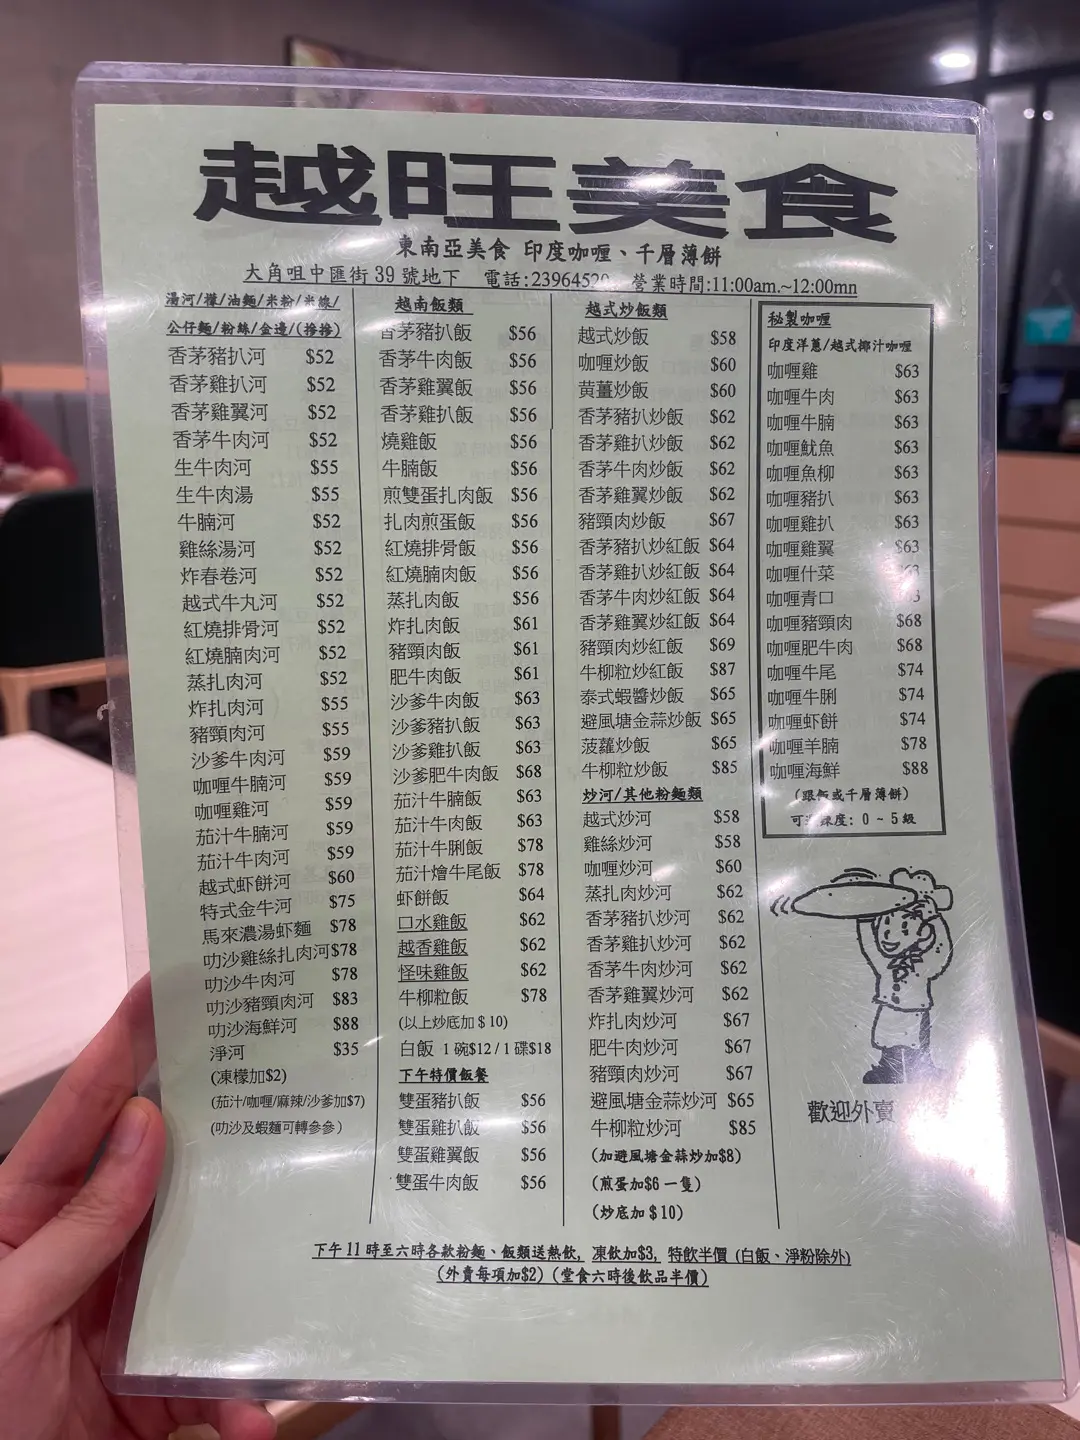 越旺美食
東南亞美食 印度咖喱、千層薄餅
大角咀中匯街 39 號地下 電話:2396452 營業時間:11:00am.~12:00mn
湯河/檬/油麵/米粉/米線/
公仔麵/粉絲/金邊/(摻摻)
香茅豬扒河 $52
香茅雞扒河 $52
香茅雞翼河 $52
香茅牛肉河 $52
生牛肉河 $55
生牛肉湯 $55
牛腩河 $52
雞絲湯河 $52
炸春卷河 $52
越式牛丸河 $52
紅燒排骨河 $52
紅燒腩肉河 $52
蒸扎肉河 $52
炸扎肉河 $55
豬頸肉河 $55
沙爹牛肉河 $59
咖喱牛腩河 $59
咖喱雞河 $59
茄汁牛腩河 $59
茄汁牛肉河 $59
越式虾餅河 $60
特式金牛河 $75
馬來濃湯虾麵 $78
叻沙雞絲扎肉河$78
叻沙牛肉河 $78
叻沙豬頸肉河 $83
叻沙海鮮河 $88
淨河 $35
(凍檬加$2)
(茄汁/咖喱/麻辣/沙爹加$7)
(叻沙及蝦麵可轉參參)
越南飯類
香茅豬扒飯 $56
香茅牛肉飯 $56
香茅雞翼飯 $56
香茅雞扒飯 $56
燒雞飯 $56
牛腩飯 $56
煎雙蛋扎肉飯 $56
扎肉煎蛋飯 $56
紅燒排骨飯 $56
紅燒腩肉飯 $56
蒸扎肉飯 $56
炸扎肉飯 $61
豬頸肉飯 $61
肥牛肉飯 $61
沙爹牛肉飯 $63
沙爹豬扒飯 $63
沙爹雞扒飯 $63
沙爹肥牛肉飯 $68
茄汁牛腩飯 $63
茄汁牛肉飯 $63
茄汁牛脷飯 $78
茄汁燴牛尾飯 $78
虾餅飯 $64
口水雞飯 $62
越香雞飯 $62
怪味雞飯 $62
牛柳粒飯 $78
(以上炒底加＄10)
白飯 1 碗$12 / 1 碟$18
下午特價飯餐
雙蛋豬扒飯 $56
雙蛋雞扒飯 $56
雙蛋雞翼飯 $56
雙蛋牛肉飯 $56
越式炒飯類
越式炒飯 $58
咖喱炒飯 $60
黄薑炒飯 $60
香茅豬扒炒飯 $62
香茅雞扒炒飯 $62
香茅牛肉炒飯 $62
香茅雞翼炒飯 $62
豬頸肉炒飯 $67
香茅豬扒炒紅飯 $64
香茅雞扒炒紅飯 $64
香茅牛肉炒紅飯 $64
香茅雞翼炒紅飯 $64
豬頸肉炒紅飯 $69
牛柳粒炒紅飯 $87
泰式蝦醬炒飯 $65
避風塘金蒜炒飯 $65
菠蘿炒飯 $65
牛柳粒炒飯 $85
炒河/其他粉麵類
越式炒河 $58
雞絲炒河 $58
咖喱炒河 $60
蒸扎肉炒河 $62
香茅豬扒炒河 $62
香茅雞扒炒河 $62
香茅牛肉炒河 $62
香茅雞翼炒河 $62
炸扎肉炒河 $67
肥牛肉炒河 $67
豬頸肉炒河 $67
避風塘金蒜炒河 $65
牛柳粒炒河 $85
(加避風塘金蒜炒加$8)
(煎蛋加$6 一隻)
(炒底加＄10)
秘製咖喱
印度洋蔥/越式椰汁咖喱
咖喱雞 $63
咖喱牛肉 $63
咖喱牛腩 $63
咖喱魷魚 $63
咖喱魚柳 $63
咖喱豬扒 $63
咖喱雞扒 $63
咖喱雞翼 $63
咖喱什菜
咖喱青口
咖喱豬頸肉 $68
咖喱肥牛肉 $68
咖喱牛尾 $74
咖喱牛脷 $74
咖喱虾餅 $74
咖喱羊腩 $78
咖喱海鮮 $88
(跟飯或千層薄餅)
可 度: 0 ~ 5 級
歡迎外賣
下午 11 時至六時各款粉麵、飯類送熱飲, 凍飲加$3, 特飲半價 (白飯、淨粉除外)
(外賣每項加$2) (堂食六時後飲品半價)